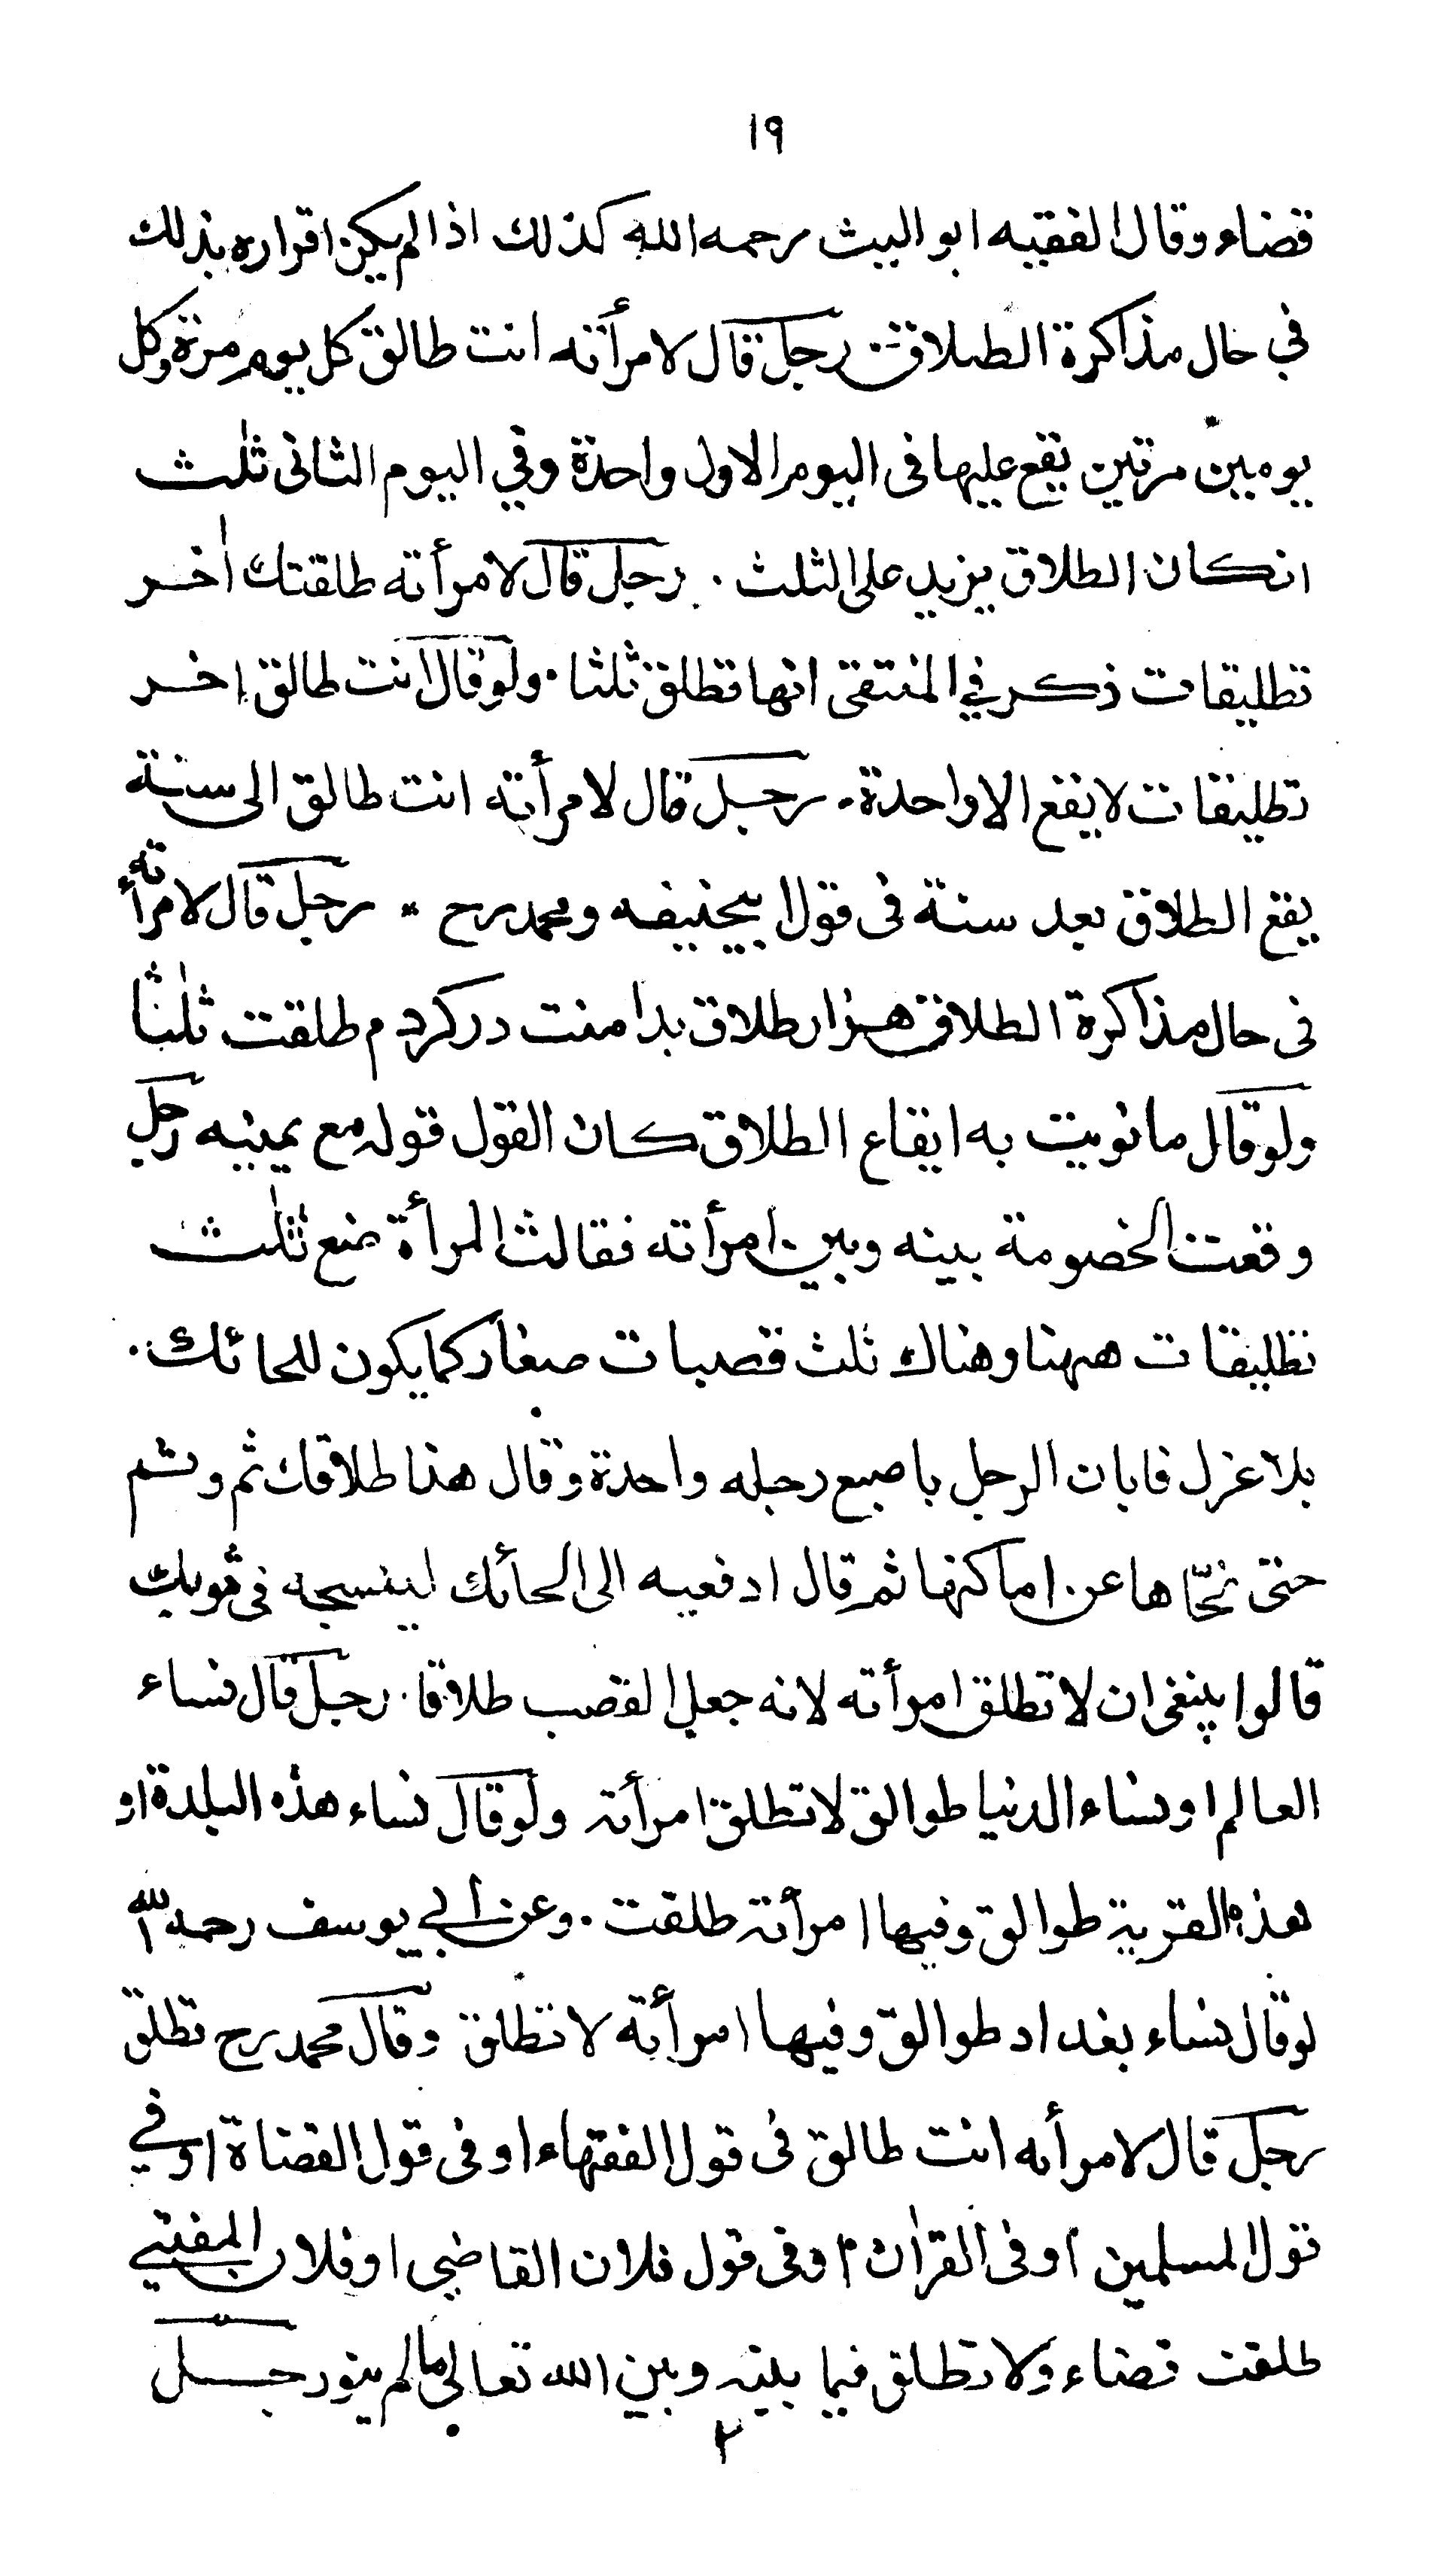 ١٩
قضاء وقال الفقيه ابو الليث رحمه الله كذلك اذا لم يكن اقراره بذلك
في حال مذاكرة الطلاق رجل قال لامرأته انت طالق كل يوم مرة وكل
يومين مرتين يقع عليها فى اليوم الاول واحدة وفي اليوم الثانى ثلٰث
انكان الطلاق يزيد على الثلث . رجل قال لامرأته طلقتك اٰخر
تطليقات ذكر في المنتقى انها تطلق ثلثا . ولو قال انت طالق اخر
تطليقات لا يقع الا واحدة . رجل قال لامرأته انت طالق الى سنة
يقع الطلاق بعد سنة فى قول ابيحنيفه ومحمد رح * رجل قال لامرأته
فى حال مذاكرة الطلاق هزار طلاق بدامنت در كردم طلقت ثلٰثا
ولو قال ما نويت به ايقاع الطلاق كان القول قوله مع يمينه رجل
وقعت الخصومة بينه وبين امرأته فقالت المرأة ضع ثلٰث
تطليقات ههنا وهناك ثلث قصبات صغار كما يكون للحائك .
بلا غزل فابان الرجل باصبع رجله واحدة وقال هذا طلاقك ثم وثم
حتى نحّاها عن اماكنها ثم قال ادفعيه الى الحائك لينسجه فى ثوبك
قالوا ينبغى ان لا تطلق امرأته لانه جعل القصب طلاقا . رجل قال نساء
العالم او نساء الدنيا طوالق لا تطلق امرأته ولو قال نساء هذه البلدة او
هذه القرية طوالق وفيها امرأته طلقت . وعن ابي يوسف رحمه الله
لو قال نساء بغداد طوالق وفيها امرأته لا تطلق وقال محمد رح تطلق
رجل قال لامرأته انت طالق فى قول الفقهاء او فى قول القضاة او في
قول المسلمين او فى القراٰن او فى قول فلان القاضي او فلان المفتي
طلقت قضاء ولا تطلق فيما بينه وبين الله تعالى ما لم ينو رجل
٢